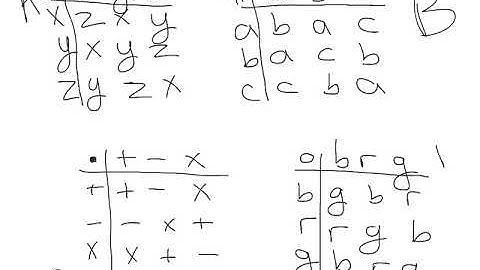 x z x y
y x y z
z y z x
a b a c
b a c b
c c b a
B
• + − x
+ + − x
− − x +
x x + −
o b r g
b g b r
r r g b
g b r g